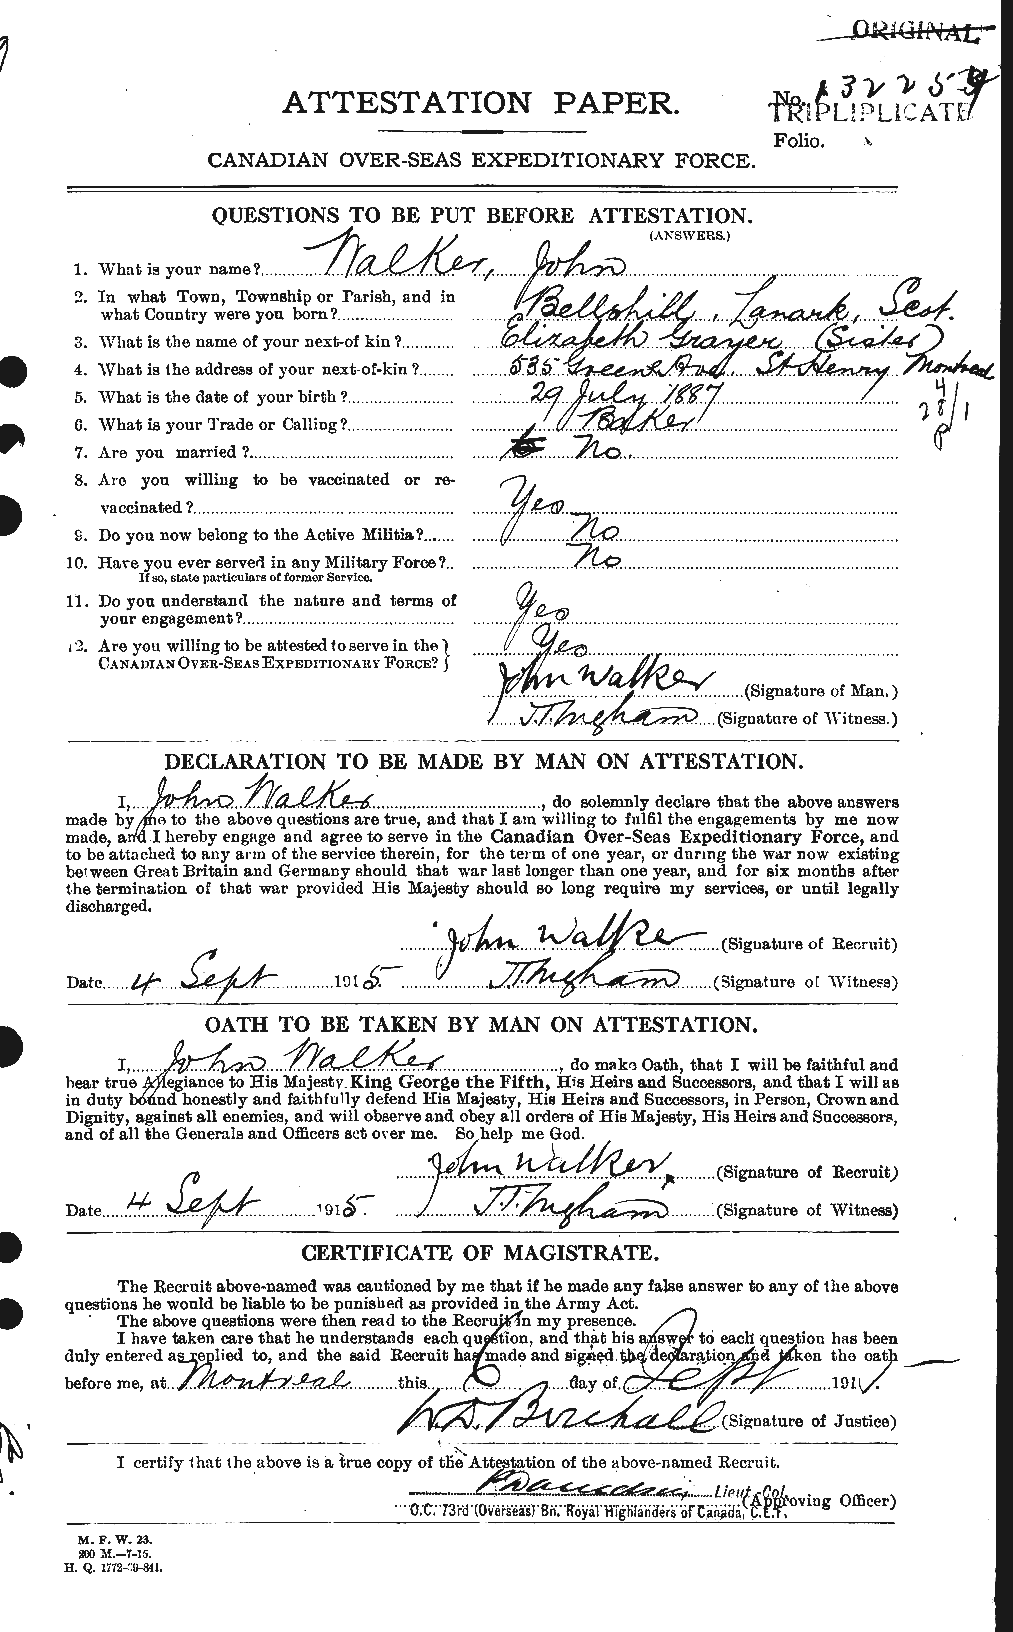 ORIGINAL
ATTESTATION PAPER.
No. 132253
TRIPLIPLICATE
Folio.
CANADIAN OVER-SEAS EXPEDITIONARY FORCE.
QUESTIONS TO BE PUT BEFORE ATTESTATION.
(ANSWERS.)
1. What is your name? Walker, John
2. In what Town, Township or Parish, and in
what Country were you born? Bellshill, Lanark, Scot.
3. What is the name of your next-of kin? Elizabeth Grayer (Sister)
4. What is the address of your next-of-kin? 535 Greene Ave. St Henry Montreal
5. What is the date of your birth? 29 July 1887
6. What is your Trade or Calling? Baker
7. Are you married? No.
8. Are you willing to be vaccinated or re-
vaccinated? Yes
9. Do you now belong to the Active Militia? No
10. Have you ever served in any Military Force? No
If so, state particulars of former Service.
11. Do you understand the nature and terms of
your engagement? Yes
12. Are you willing to be attested to serve in the
CANADIAN OVER-SEAS EXPEDITIONARY FORCE? Yes
John Walker (Signature of Man.)
(Signature of Witness.)
DECLARATION TO BE MADE BY MAN ON ATTESTATION.
I, John Walker, do solemnly declare that the above answers
made by me to the above questions are true, and that I am willing to fulfil the engagements by me now
made, and I hereby engage and agree to serve in the Canadian Over-Seas Expeditionary Force, and
to be attached to any arm of the service therein, for the term of one year, or during the war now existing
between Great Britain and Germany should that war last longer than one year, and for six months after
the termination of that war provided His Majesty should so long require my services, or until legally
discharged.
John Walker (Signature of Recruit)
Date 4 Sept 1915. (Signature of Witness)
OATH TO BE TAKEN BY MAN ON ATTESTATION.
I, John Walker, do make Oath, that I will be faithful and
bear true Allegiance to His Majesty King George the Fifth, His Heirs and Successors, and that I will as
in duty bound honestly and faithfully defend His Majesty, His Heirs and Successors, in Person, Crown and
Dignity, against all enemies, and will observe and obey all orders of His Majesty, His Heirs and Successors,
and of all the Generals and Officers set over me. So help me God.
John Walker (Signature of Recruit)
Date 4 Sept 1915. (Signature of Witness)
CERTIFICATE OF MAGISTRATE.
The Recruit above-named was cautioned by me that if he made any false answer to any of the above
questions he would be liable to be punished as provided in the Army Act.
The above questions were then read to the Recruit in my presence.
I have taken care that he understands each question, and that his answer to each question has been
duly entered as replied to, and the said Recruit has made and signed the declaration and taken the oath
before me, at Montreal this 6 day of Sept 191
W.D. Birchall (Signature of Justice)
I certify that the above is a true copy of the Attestation of the above-named Recruit.
Lieut. Col. (Approving Officer)
O.C. 73rd (Overseas) Bn. Royal Highlanders of Canada, C.E.F.
M. F. W. 23.
200 M.—7-15.
H. Q. 1772-39-841.